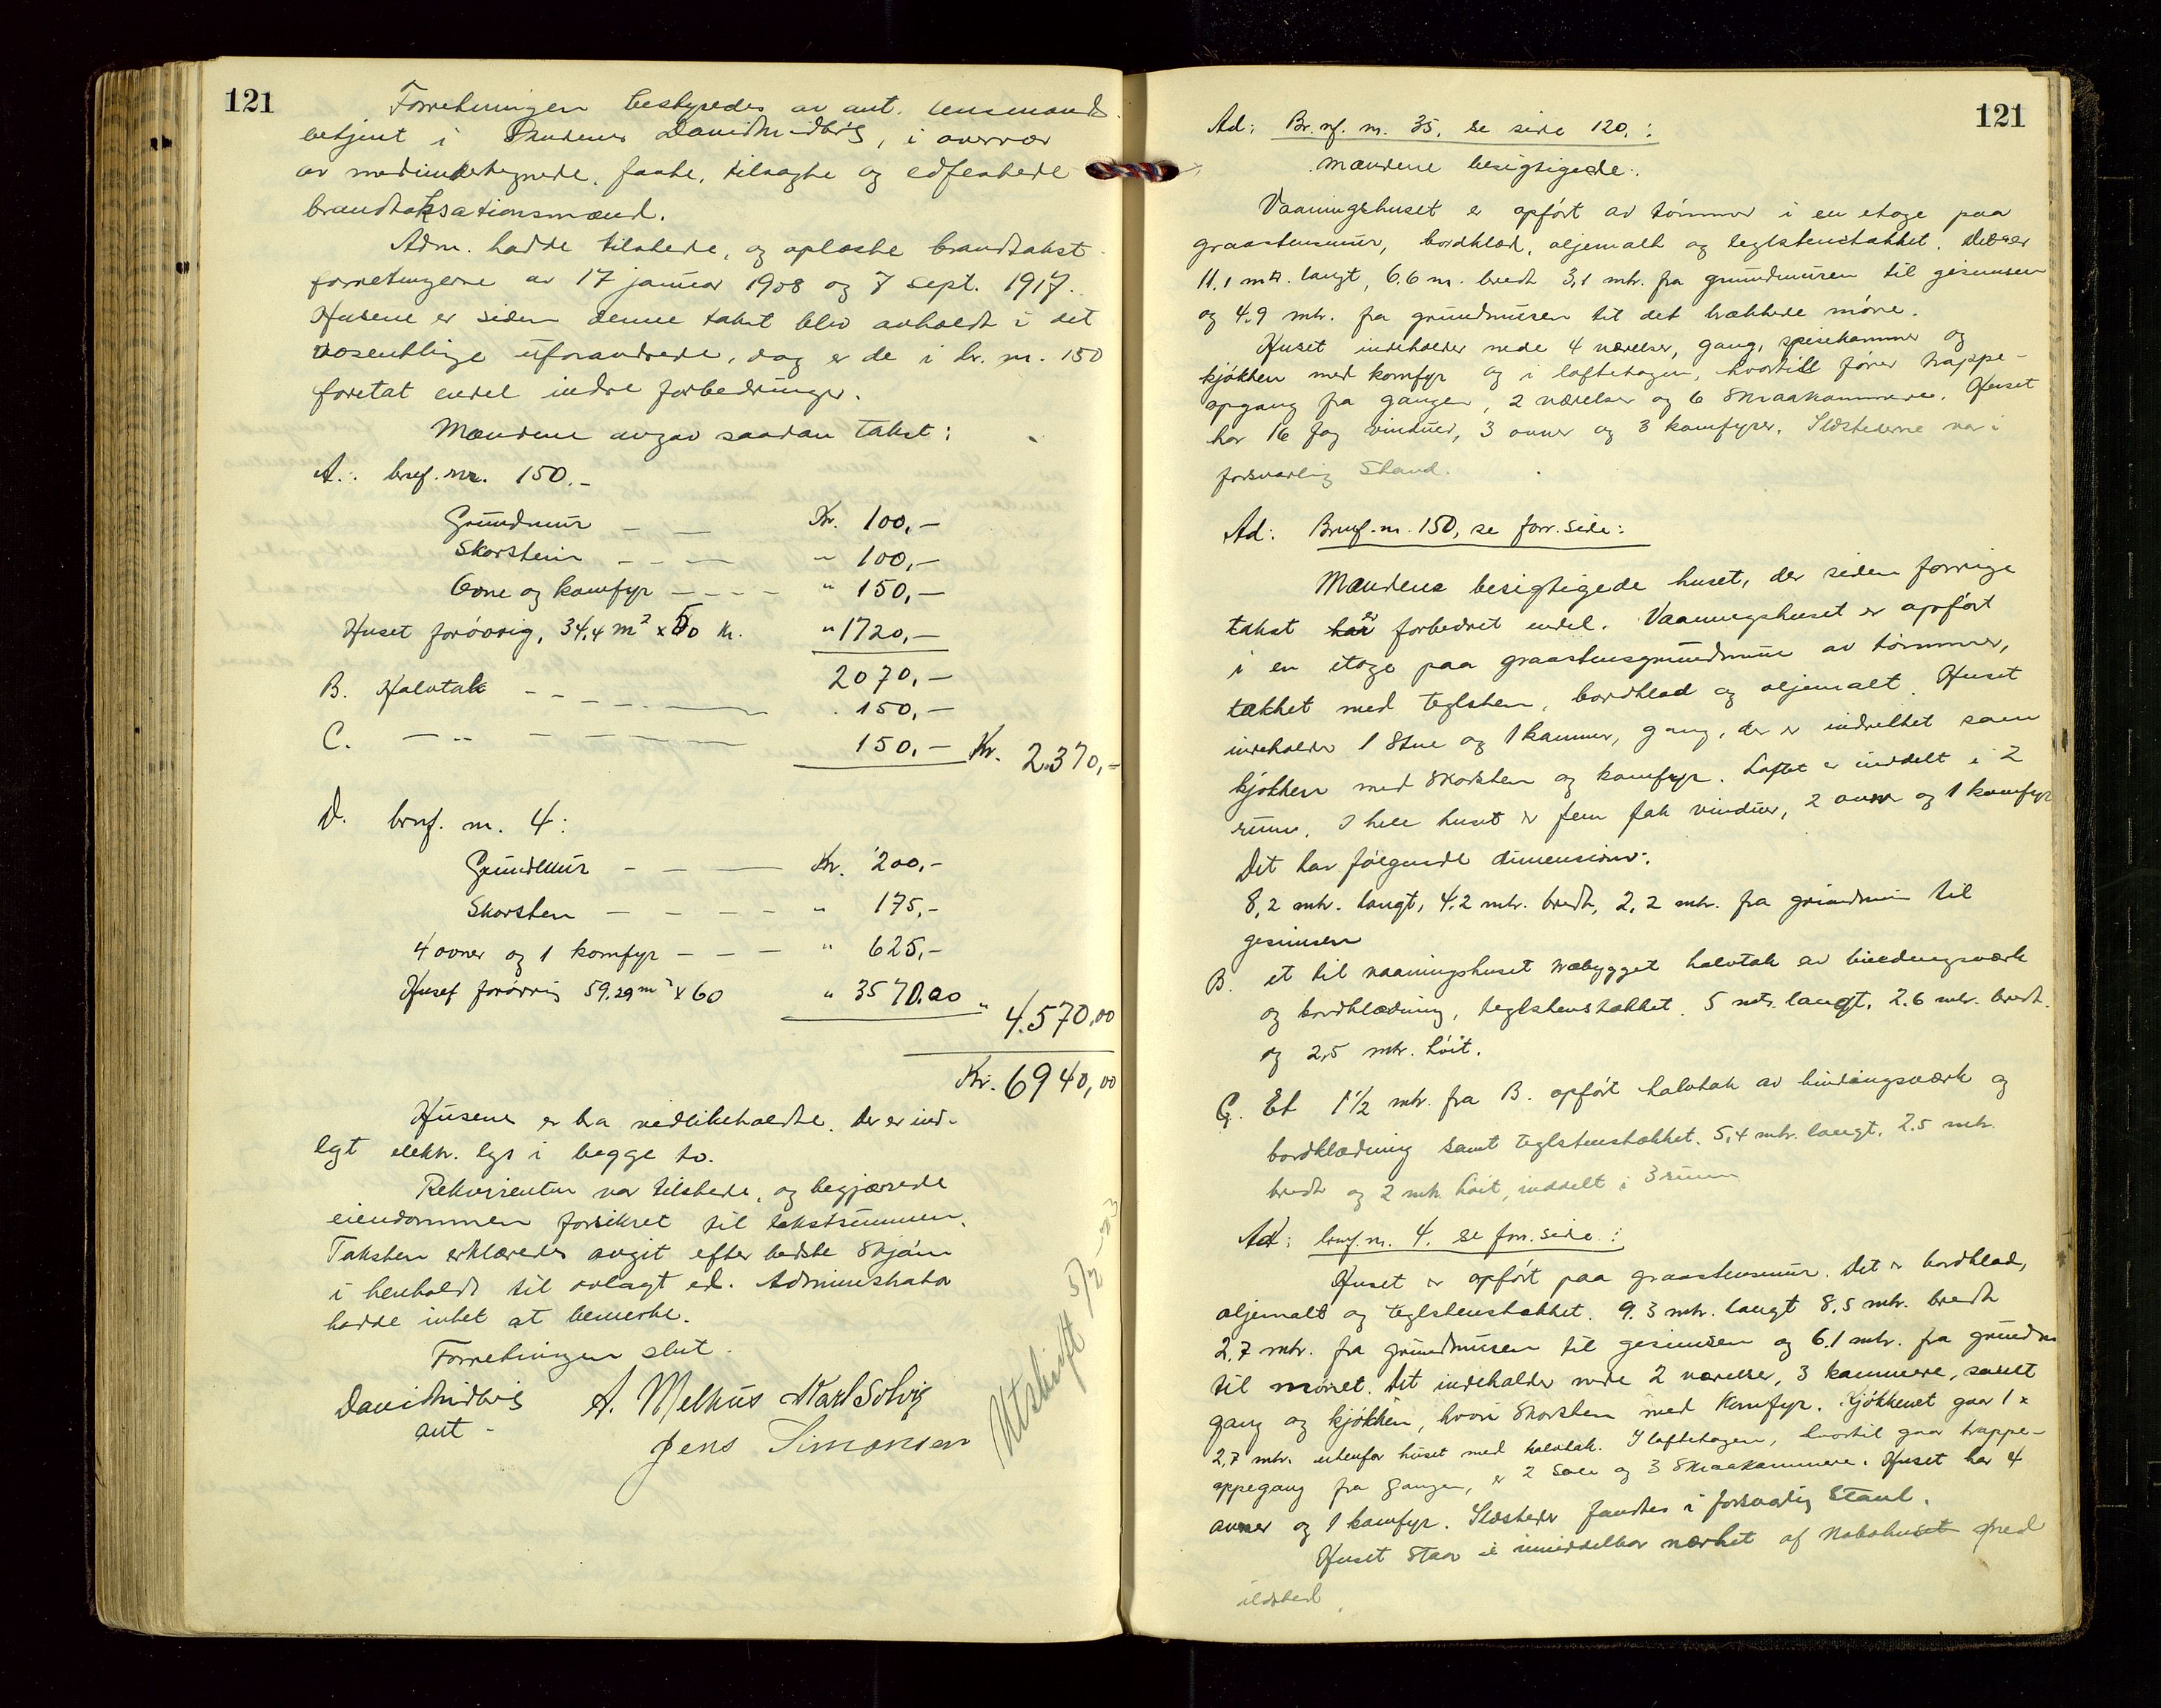 121
Forretningen bestyredes av aut. lensmands
betjent i Skudenes David Midbøs, i overvær
av medundertegnede, faste, tilsagte og edfestede
brandtaksationsmænd.
Adm. hadde tilstede, og oplæste brandtakst
forretningerne av 17 januar 1908 og 7 sept. 1917.
Husene er siden denne takst blev avholdt i det
væsentlige uforandrede, dog er de i br. nr. 150
foretat endel indre forbedringer.
Mændene avgav saadan takst:
A.: brnf. nr. 150.-
Grundmur - - Kr. 100,-
Skorstein - - - " 100,-
Ovne og komfyr - - - - " 150,-
Huset forøvrig, 34,4 m² x 50 kr. " 1720,-
2070,-
B. Halvtak - - - - - 150,-
C. - " - - - 150,- Kr. 2.370,-
D. brnf. nr. 4:
Grundmur - - - Kr. 200,-
Skorsten - - - - " 175,-
4 ovner og 1 komfyr - - - " 625,-
Huset forøvrig 59,29 m² x 60 " 3570.00 " 4.570,00
Kr. 6940,00
Husene er bra vedlikeholdte. Der er ind-
lgt elektr. lys i begge to.
Rekvirenten var tilstede, og begjærede
eiendommen forsikret til takstsummen.
Taksten erklæredes avgit efter bedste skjøn
i henhold til avlagt ed. Administrator
hadde intet at bemerke.
Forretningen slut.
David Midbøs A. Melhus Karl Solvig
aut - Jens Simonsen
Utskrift 5/2 - 23
121
Ad: Br. nf. nr. 35, se side 120.:
Mændene besigtigede:
Vaaningshuset er opført av tømmer i en etage paa
graastensmur, bordklæd, oljemalt og teglstenstækket. Det er
11.1 mtr. langt, 6.6 m. bredt 3,1 mtr. fra grundmuren til gesimsen
og 4.9 mtr. fra grundmuren til det brækkede møne.
Huset indeholder nede 4 værelser, gang, spisekammer og
kjøkken med komfyr og i loftetagen, hvortill fører trappe-
opgang fra gangen, 2 værelser og 6 skraakammere. Huset
har 16 fag vinduer, 3 ovner og 3 komfyrer. Ildstederne var i
forsvarlig stand.
Ad: Brnf. nr. 150, se forr. side:
Mændene besigtigede huset, der siden forrige
takst er forbedret endel. Vaaningshuset er opført
i en etage paa graastensgrundmur av tømmer,
tækket med teglsten, bordklæd og oljemalt. Huset
indeholder 1 stue og 1 kammer, gang, der er indrettet som
kjøkken med skorsten og komfyr. Loftet er inddelt i 2
rum. I hele huset er fem fak vinduer, 2 ovner og 1 komfyr
Det har følgende dimensioner:
8,2 mtr. langt, 4.2 mtr. bredt, 2,2 mtr. fra grundmur til
gesimsen
B. et til vaaningshuset tilbygget halvtak av bindingsværk
og bordklædning, teglstenstækket. 5 mtr. langt, 2.6 mtr. bredt
og 2,5 mtr. høit.
C. Et 1½ mtr. fra B. opført halvtak av bindingsværk og
bordklædning samt teglstenstækket. 5,4 mtr. langt, 2.5 mtr.
bredt og 2 mtr. høit, inddelt i 3 rum
Ad: brnf. nr. 4. se forr. side:
Huset er opført paa graastensmur. Det er bordklæd,
oljemalt og teglstenstækket. 9.3 mtr. langt 8.5 mtr. bredt
2,7 mtr. fra grundmuren til gesimsen og 6.1 mtr. fra grundm
til mønet. Det indeholder nede 2 værelser, 3 kammere, samt
gang og kjøkken, hvori skorsten med komfyr. Kjøkkenet gaar 1 x
2,7 mtr. utenfor huset med halvtak. I loftetagen, hvortil gaar trappe-
oppegang fra gangen, er 2 sale og 3 skraakammere. Huset har 4
ovner og 1 komfyr. Ildsteder fandtes i forsvarlig stand.
Huset staar i umiddelbar nærhet af nabohuset med
ildsted.